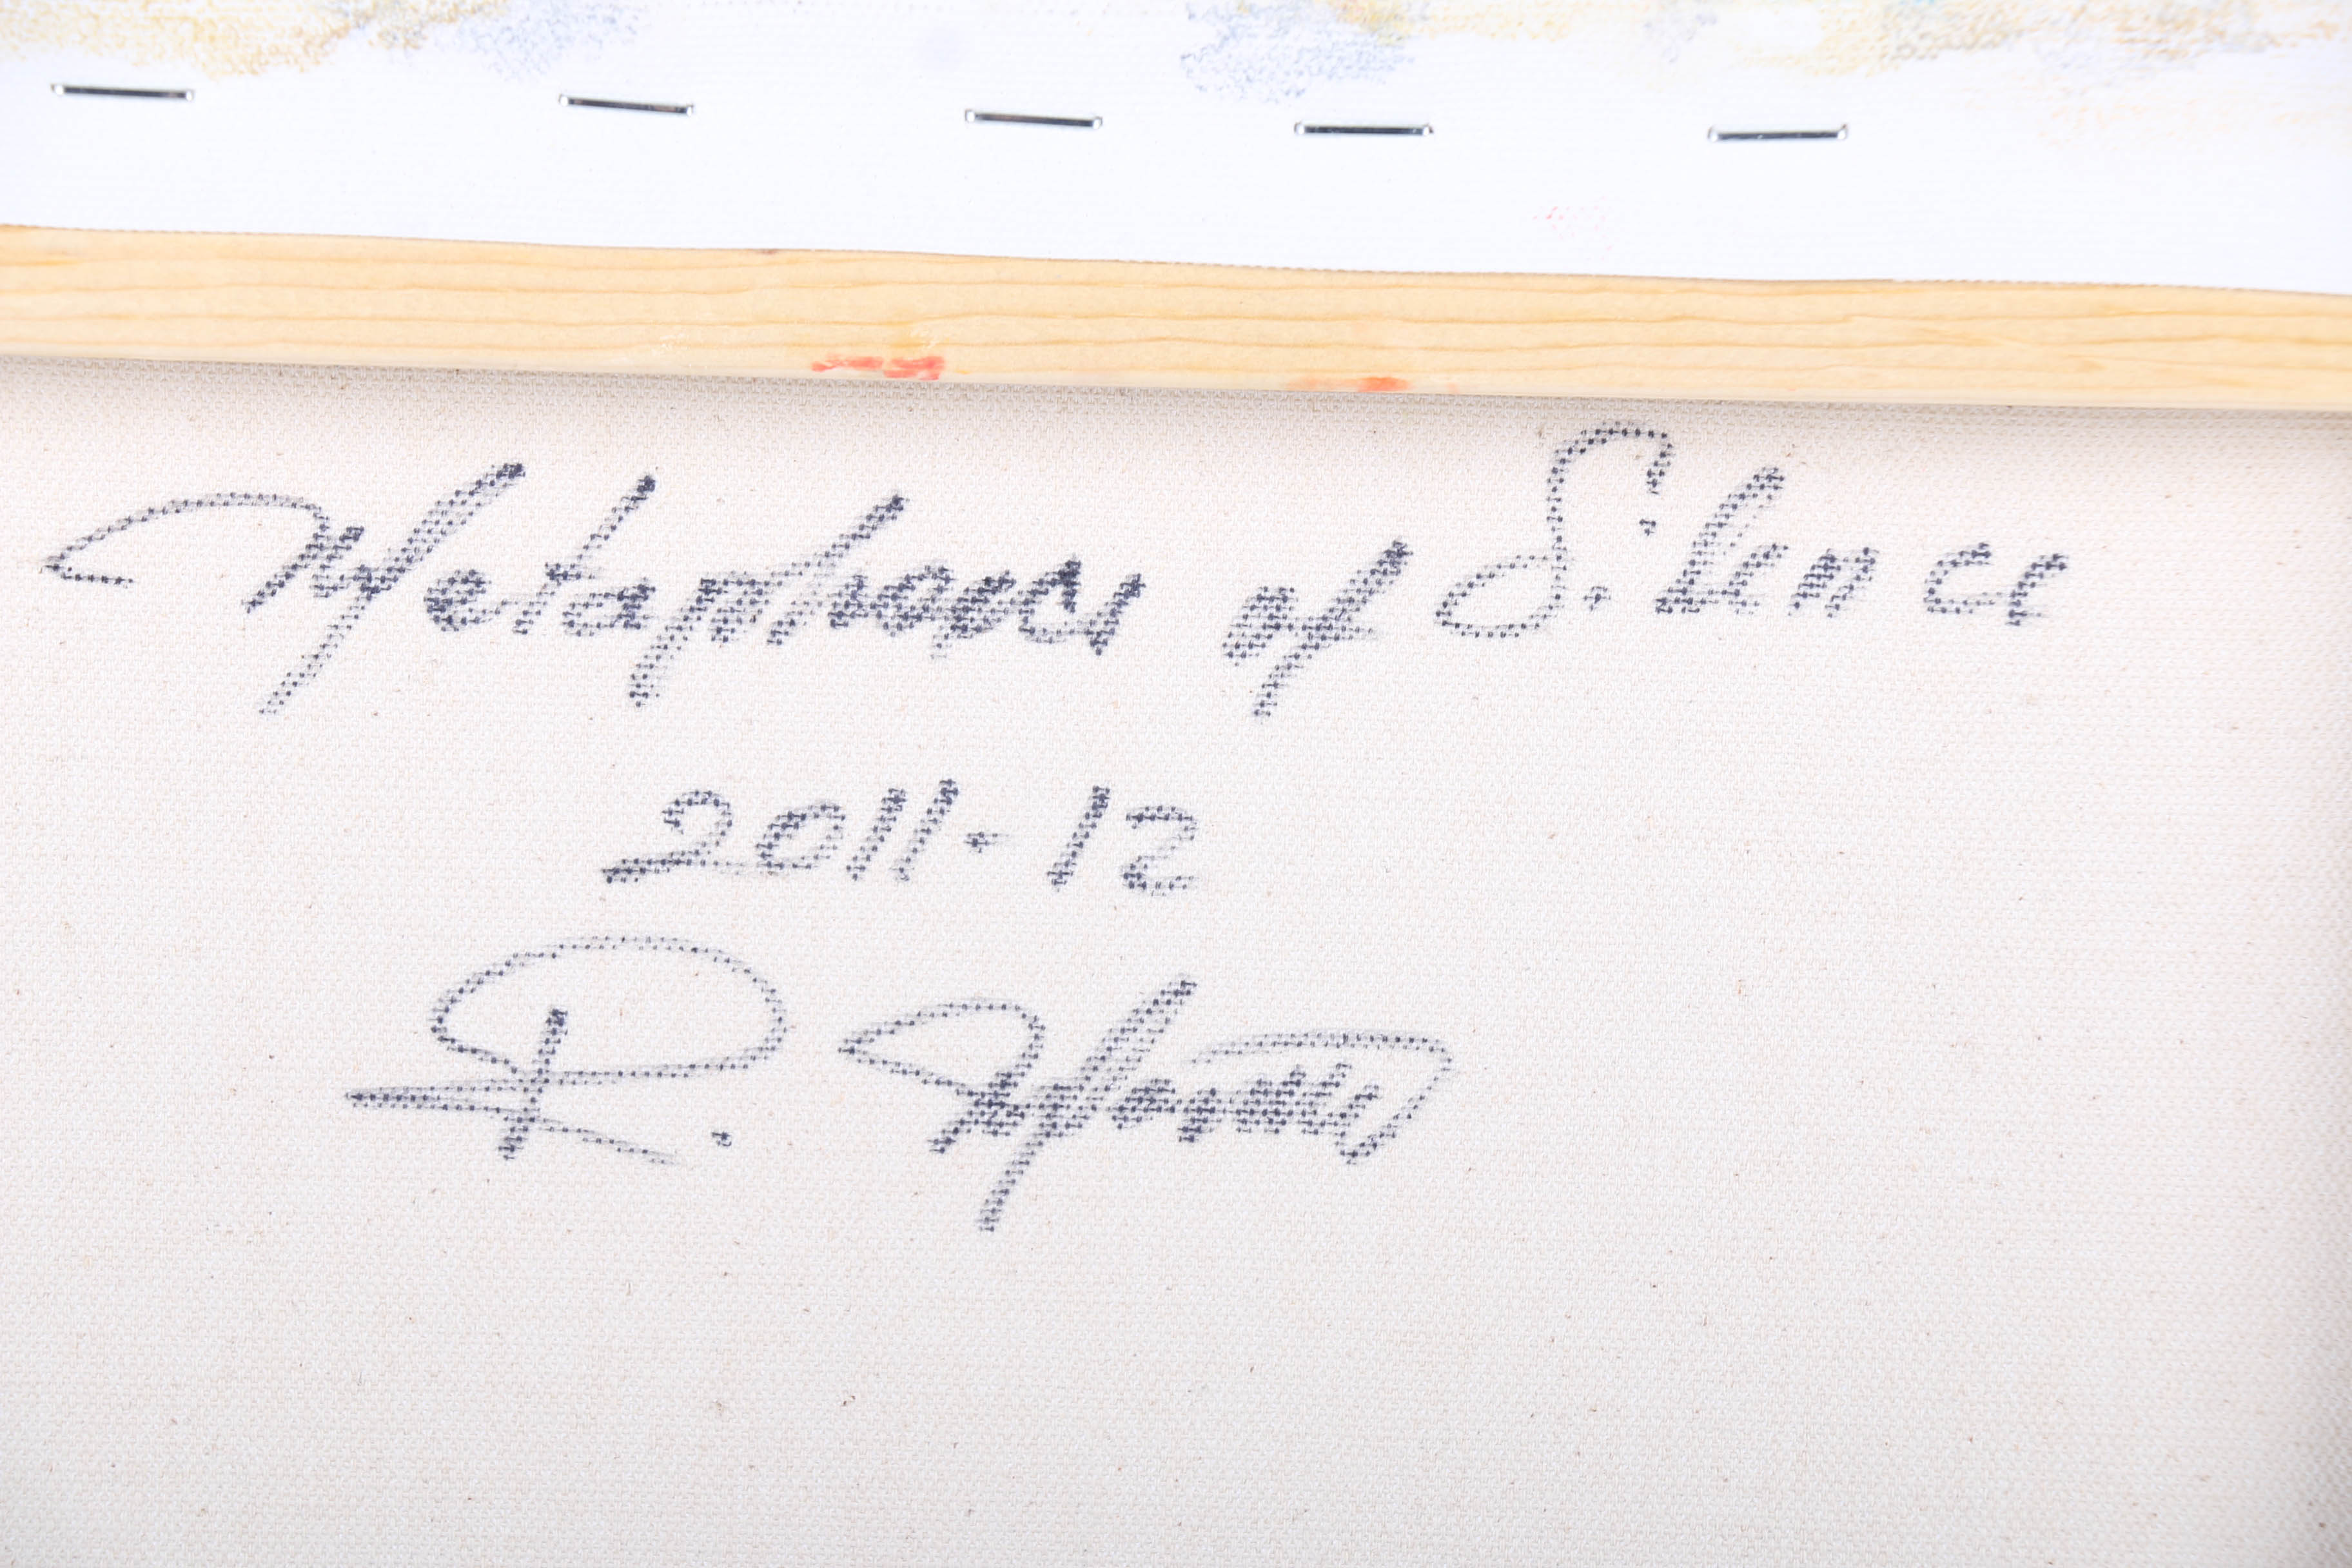 Metaphors of Silence
2011-12
R.